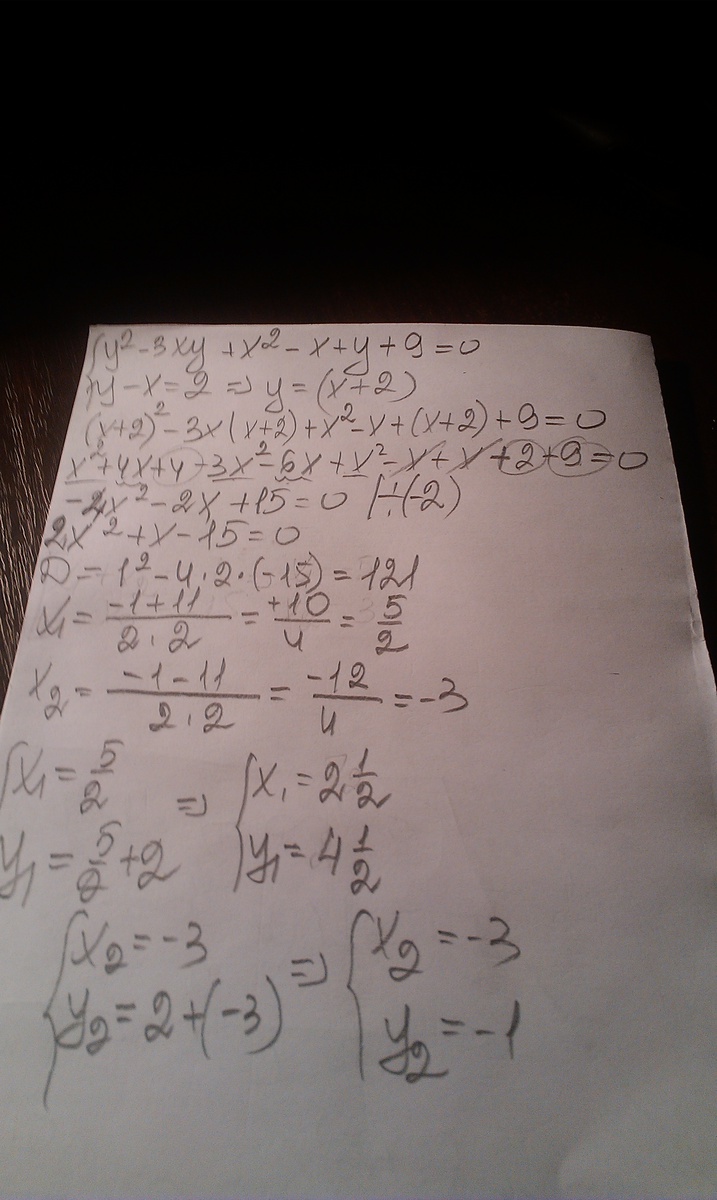 {y² - 3xy + x² - x + y + 9 = 0
{y - x = 2 => y = (x+2)
(x+2)² - 3x(x+2) + x² - x + (x+2) + 9 = 0
x² + 4x + 4 - 3x² - 6x + x² - x + x + 2 + 9 = 0
-2x² - 2x + 15 = 0 |÷(-2)
2x² + x - 15 = 0
D = 1² - 4·2·(-15) = 121
x₁ = (-1+11)/(2·2) = +10/4 = 5/2
x₂ = (-1-11)/(2·2) = -12/4 = -3
{x₁ = 5/2 => {x₁ = 2 1/2
y₁ = 5/2 + 2 {y₁ = 4 1/2
{x₂ = -3 => {x₂ = -3
{y₂ = 2 + (-3) {y₂ = -1